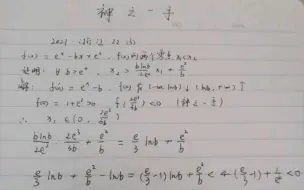 神之一手
2021 浙江22(3)
f(x) = e^x - bx + e^2, f(x)有两个零点 x_1 < x_2
证明: ∀ b > e^4, x_2 > \frac{b\ln b}{2e^2} x_1 + \frac{e^2}{b}
解: f'(x) = e^x - b, f(x) 在 (-∞, \ln b) ↓ (\ln b, +∞) ↑
f(0) = 1 + e^2 > 0 f(\frac{3e^2}{b}) < 0 (神之一手)
∴ x_1 ∈ (0, \frac{3e^2}{b})
\frac{b\ln b}{2e^2} · \frac{2e^2}{3b} + \frac{e^2}{b} = \frac{e}{3} \ln b + \frac{e^2}{b}
\frac{e}{3} \ln b + \frac{e^2}{b} - \ln b = (\frac{e}{3} - 1) \ln b + \frac{e^2}{b} < 4(\frac{e}{3} - 1) + \frac{1}{e^2} < 0